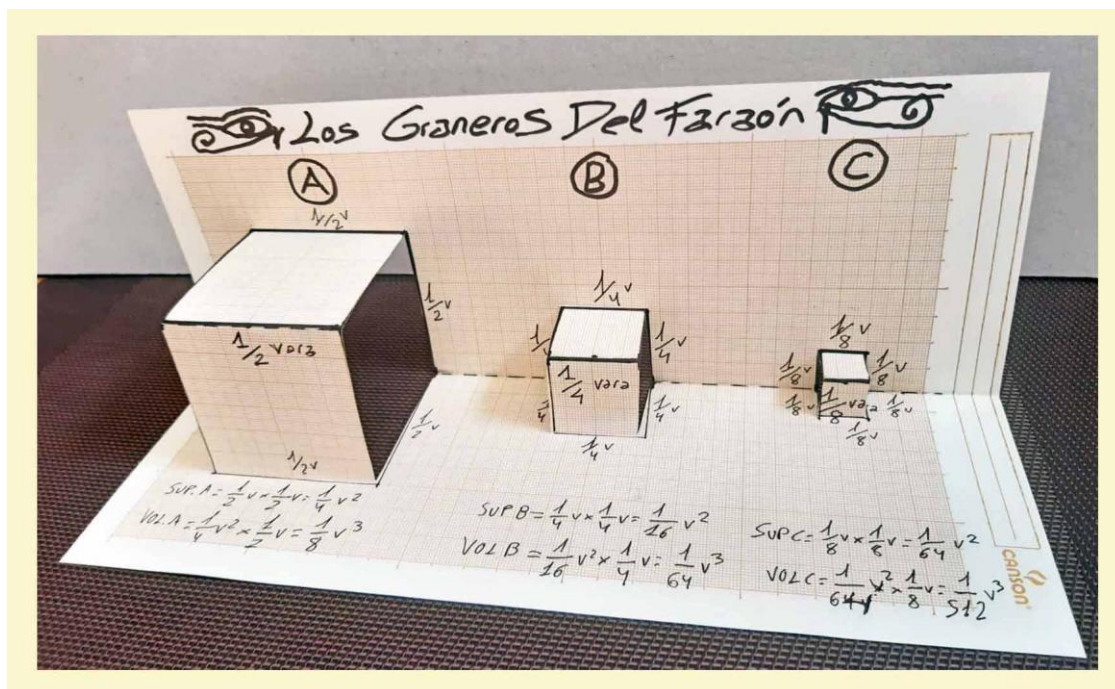 Los Graneros Del Faraón
A
B
C
1/2 v
1/2 v
1/2 vara
1/2 v
1/2 v
1/4 v
1/4 v
1/4 vara
1/4
1/4 v
1/4 v
1/8 v
1/8 v
1/8 v
1/8 v
1/8 vara
1/8 v
1/8 v
SUP. A = 1/2 v x 1/2 v = 1/4 v²
VOL. A = 1/4 v² x 1/2 v = 1/8 v³
SUP B = 1/4 v x 1/4 v = 1/16 v²
VOL B = 1/16 v² x 1/4 v = 1/64 v³
SUP C = 1/8 v x 1/8 v = 1/64 v²
VOL C = 1/64 v² x 1/8 v = 1/512 v³
CANSON